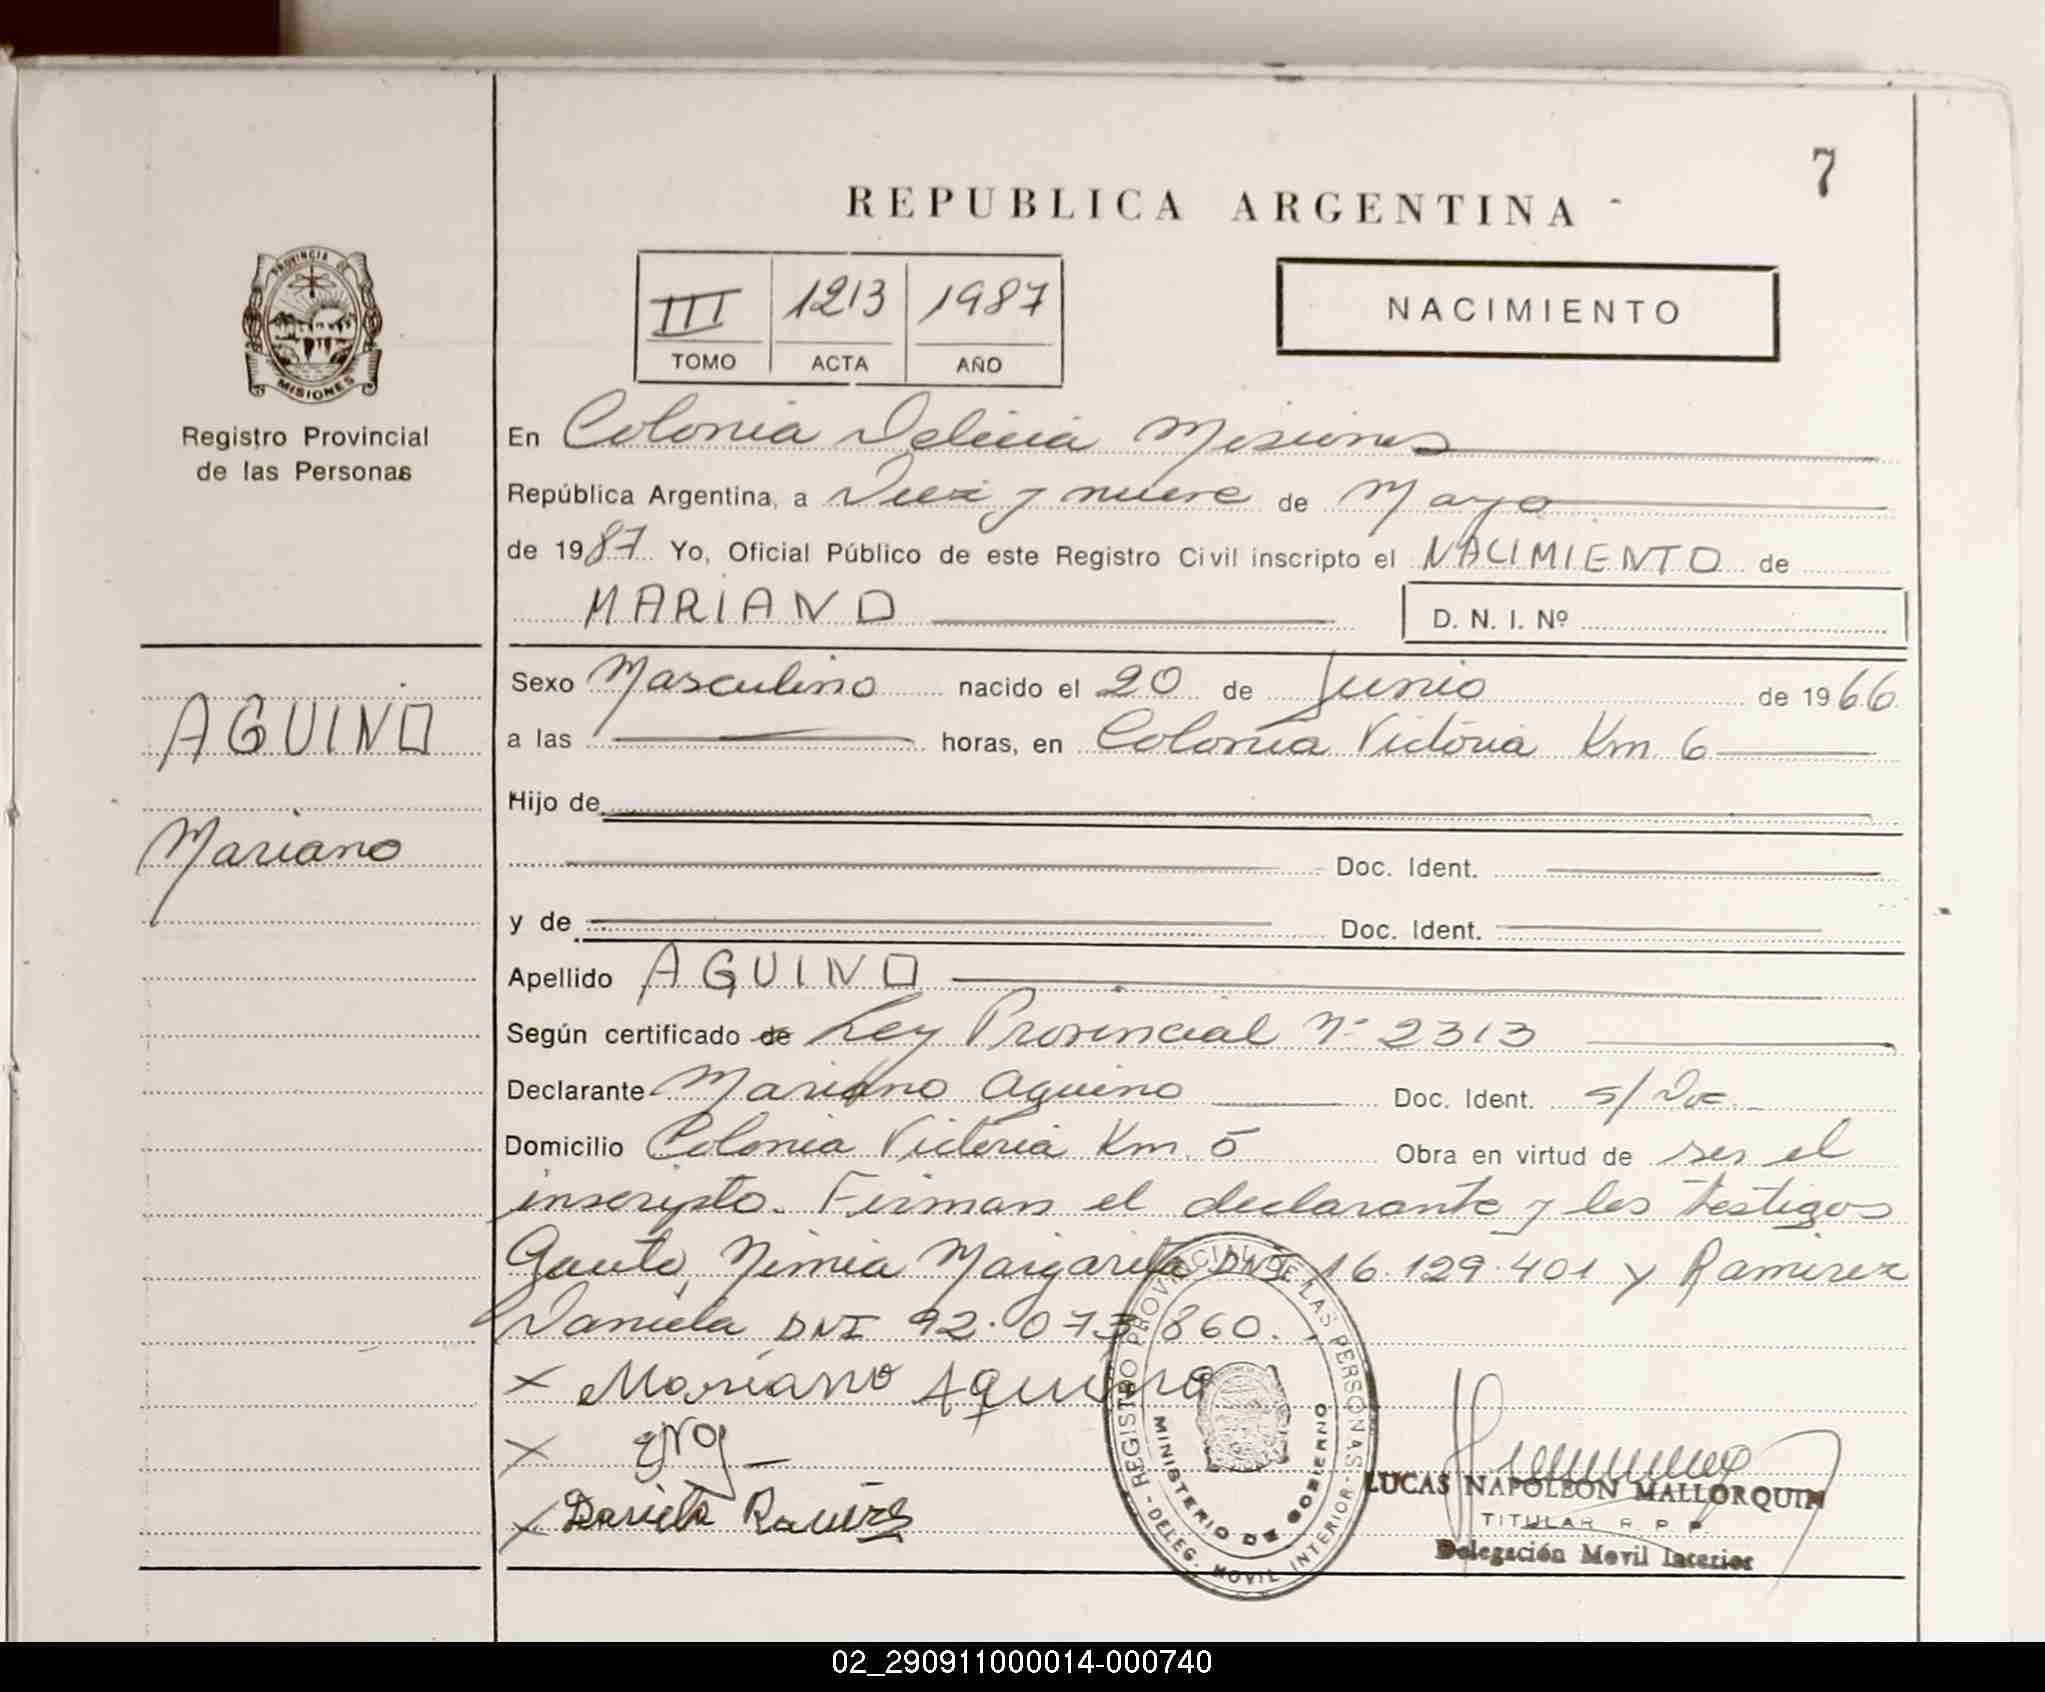 7
REPUBLICA ARGENTINA
PROVINCIA DE
MISIONES
Registro Provincial
de las Personas
III 1213 1987
TOMO ACTA AÑO
NACIMIENTO
En Colonia Delicia Misiones
República Argentina, a Diez y nueve de Mayo
de 1987 Yo, Oficial Público de este Registro Civil inscripto el NACIMIENTO de
MARIANO D. N. I. Nº
AGUINO
Mariano
Sexo Masculino nacido el 20 de Junio de 1966
a las horas, en Colonia Victoria Km 6
Hijo de
Doc. Ident.
y de Doc. Ident.
Apellido AGUINO
Según certificado de Ley Provincial Nº 2313
Declarante Mariano Aguino Doc. Ident. s/ Doc.
Domicilio Colonia Victoria Km. 5 Obra en virtud de ser el
inscripto. Firman el declarante y los testigos
Gauto, Nimia Margarita DNI 16.129.401 y Ramirez
Daniela DNI 92.073.860.
x Mariano Aquino
x
x Daniela Ramirez
REGISTRO PROVINCIAL DE LAS PERSONAS
MINISTERIO DE GOBIERNO
- DELEG. MOVIL INTERIOR -
LUCAS NAPOLEON MALLORQUIN
TITULAR R. P. P.
Delegación Movil Interior
02_290911000014-000740